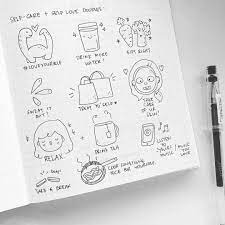 SELF-CARE + SELF LOVE DOODLES
#LOVEYOURSELF
DRINK MORE
WATER!
EAT RIGHT
SWEAT IT
OUT!
TREAT YO SELF
TAKE
CARE OF
UR SKIN!
RELAX
DRINK TEA
LISTEN
TO
MUSIC
YOU
LOVE
TAKE A BREAK
COOK SOMETHING
NICE FOR YOURSELF